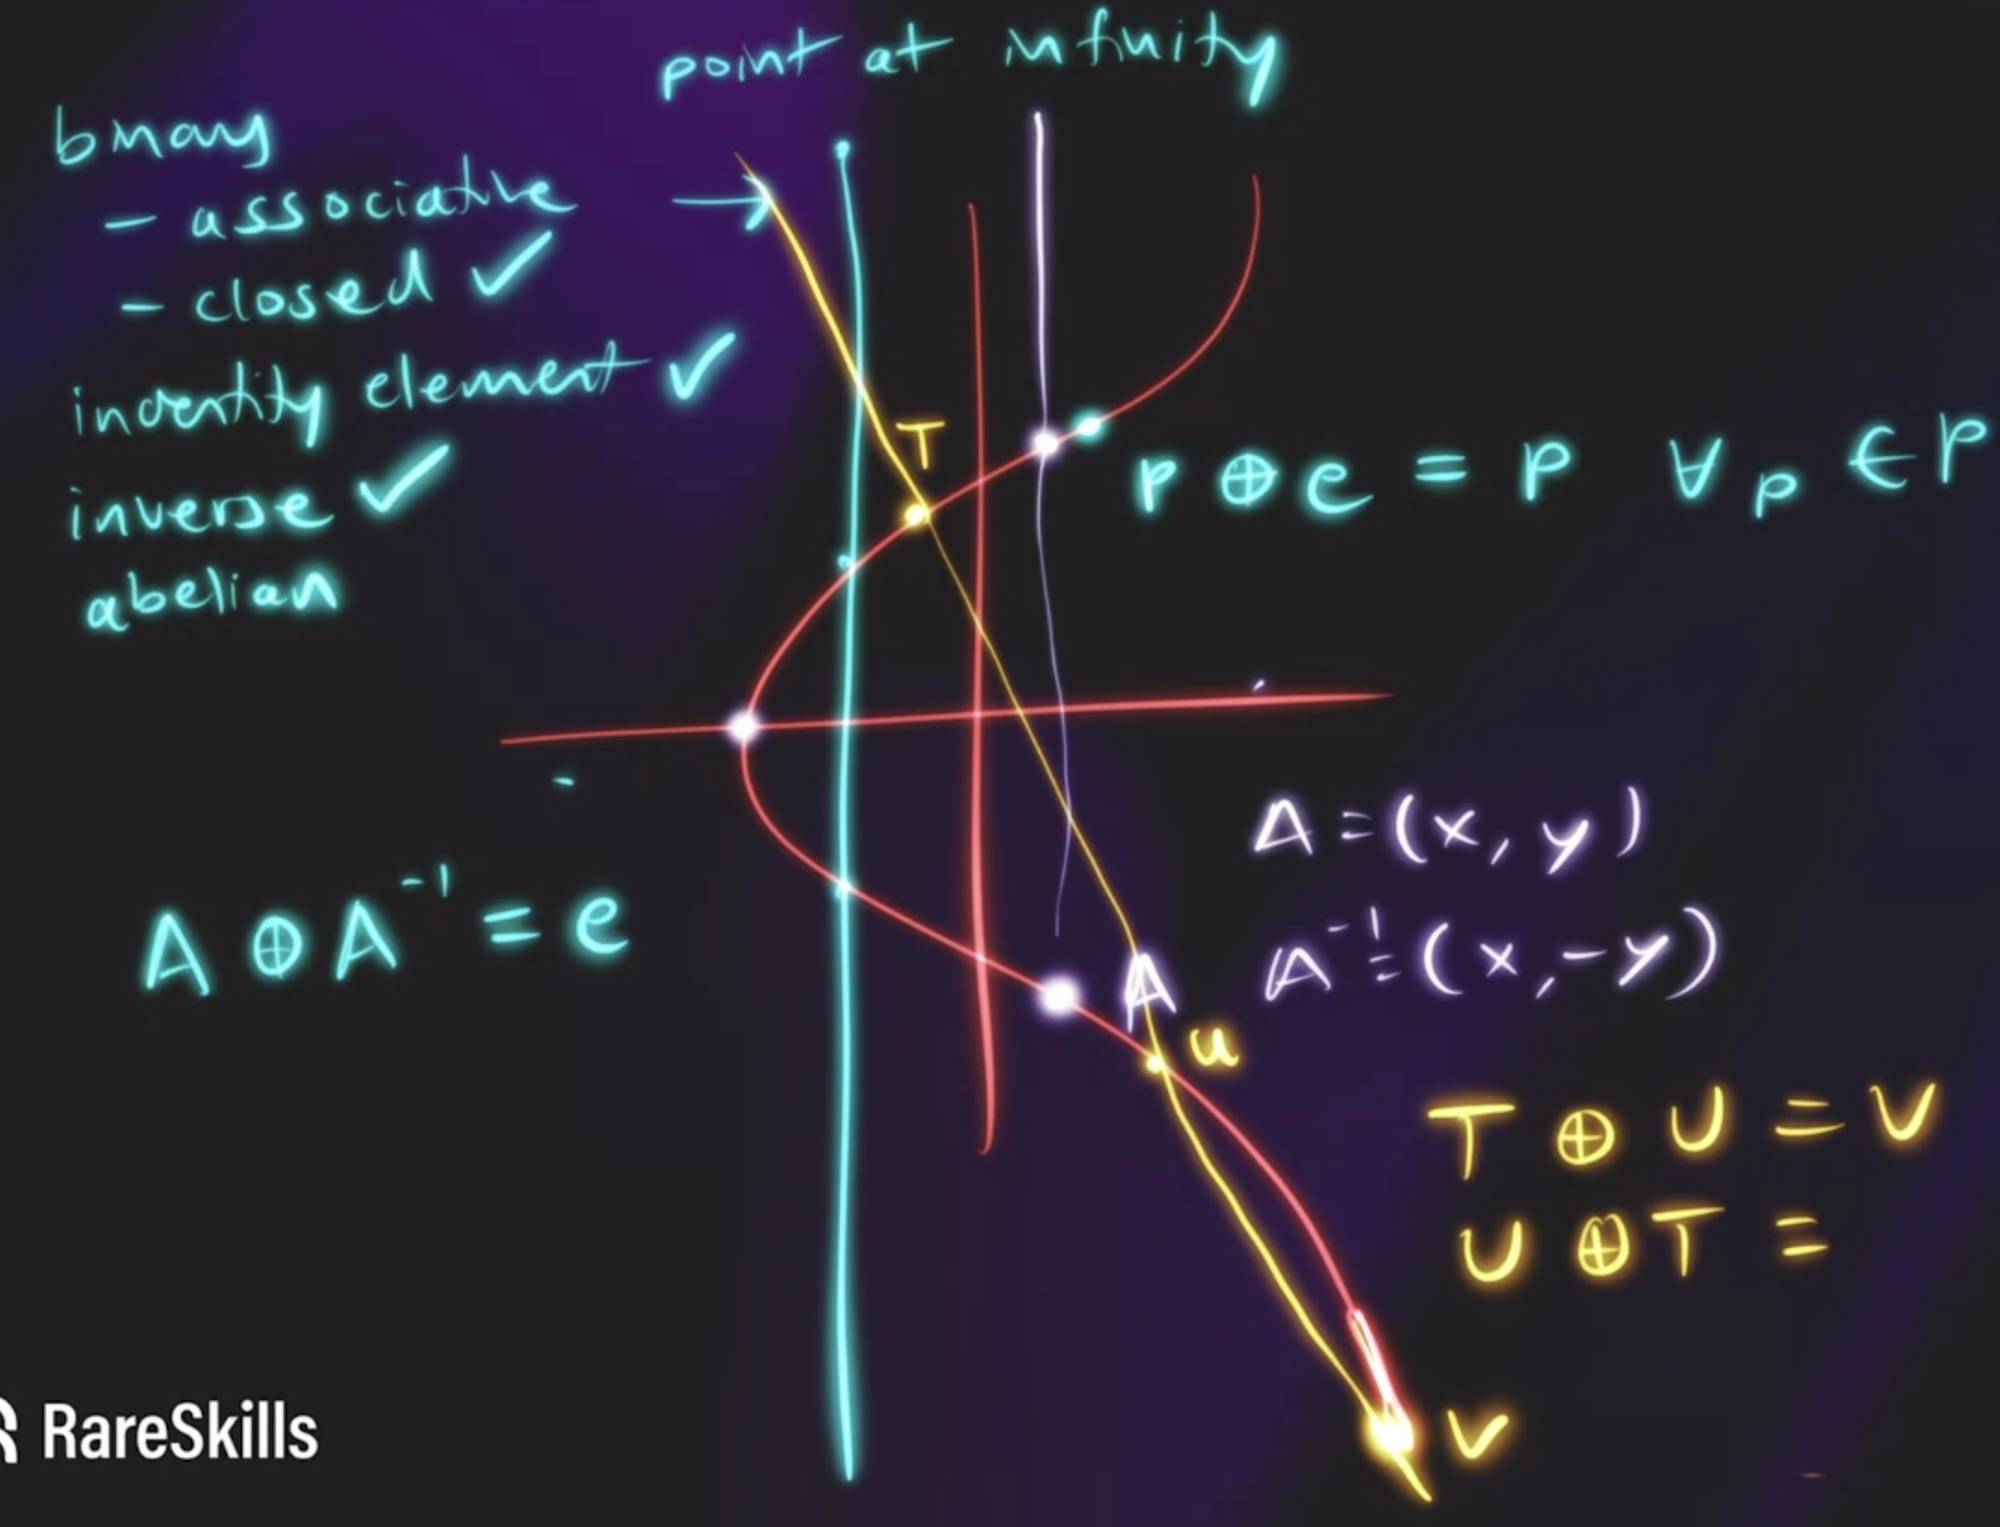 point at infinity
binary
- associative
- closed ✓
indentity element ✓
inverse ✓
abelian
T
p ⊕ e = p ∀p ∈ P
A = (x, y)
A⁻¹ = (x, -y)
A ⊕ A⁻¹ = e
A
u
T ⊕ U = V
U ⊕ T =
V
RareSkills